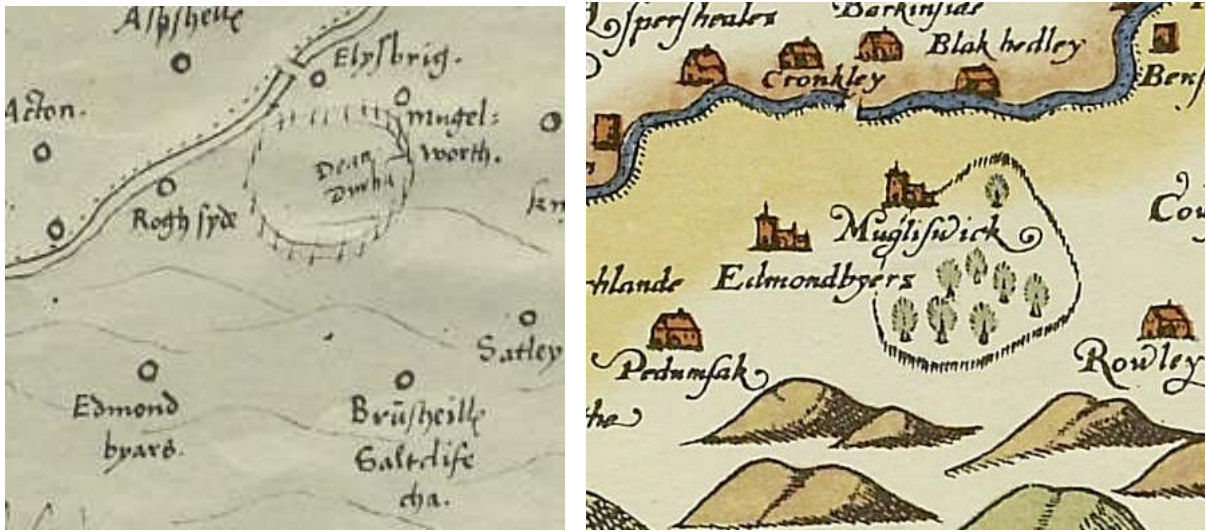 Aspshelle
Elysbrig.
Acton.
Mugel=
worth.
Dean
Durha
Roghsyde
Satley
Edmond
byars.
Brūsheille
Saltclife
cha.
Espersheales
Barkinside
Blakhedley
Cronkley
Mugliswick
Edmondbyers
Pedumsak
Rowley